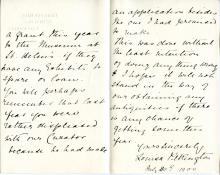 a grant this year
to the Museum at
St. Helen's if they
have any Exhibits to
spare or loan.
You will perhaps
remember that last
year you were
rather displeased
with our Curator
because he had made
an application besides
the one I had promised
to make
This was done without
the least intention
of doing any thing wrong
& I hope it will not
stand in the way of
our obtaining any
antiquities if there
is any chance of
getting some this
year
Yours sincerely
Louisa Pilkington
1900